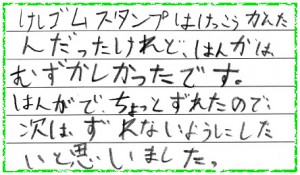 けしゴムスタンプはけっこうかんた
んだったけれど、はんがは、
むずかしかったです。
はんがで、ちょっとずれたので、
次は、ずれないようにした
いと思いました。